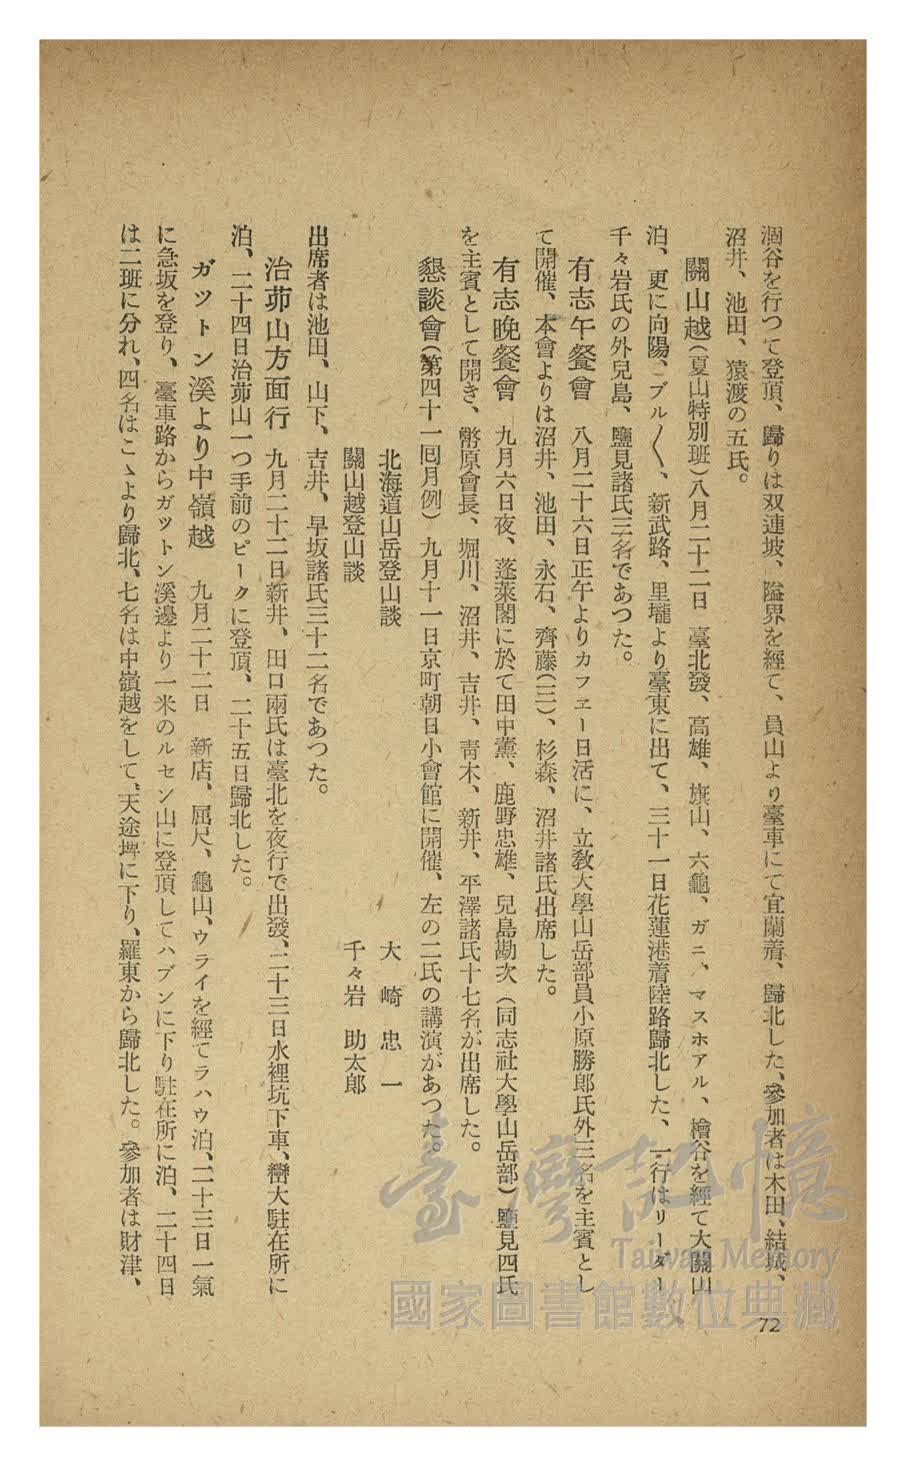 涸谷を行つて登頂、歸りは双連坡、隘界を經て、員山より臺車にて宜蘭着、歸北した、參加者は木田、結城、
沼井、池田、猿渡の五氏。
關山越(夏山特別班)八月二十二日 臺北發、高雄、旗山、六龜、ガニ、マスホアル、檜谷を經て大關山
泊、更に向陽、ブル〱、新武路、里壠より臺東に出て、三十一日花蓮港着陸路歸北した、一行はリーダー
千々岩氏の外兒島、鹽見諸氏三名であつた。
有志午餐會 八月二十六日正午よりカフヱー日活に、立敎大學山岳部員小原勝郎氏外三名を主賓とし
て開催、本會よりは沼井、池田、永石、齊藤(三)、杉森、沼井諸氏出席した。
有志晩餐會 九月六日夜、蓬萊閣に於て田中薰、鹿野忠雄、兒島勘次(同志社大學山岳部)鹽見四氏
を主賓として開き、幣原會長、堀川、沼井、吉井、靑木、新井、平澤諸氏十七名が出席した。
懇談會(第四十一囘月例) 九月十一日京町朝日小會館に開催、左の二氏の講演があつた。
北海道山岳登山談 大崎忠一
關山越登山談 千々岩助太郎
出席者は池田、山下、吉井、早坂諸氏三十二名であつた。
治茆山方面行 九月二十二日新井、田口兩氏は臺北を夜行で出發、二十三日水裡坑下車、巒大駐在所に
泊、二十四日治茆山一つ手前のピークに登頂、二十五日歸北した。
ガツトン溪より中嶺越 九月二十二日 新店、屈尺、龜山、ウライを經てラハウ泊、二十三日一氣
に急坂を登り、臺車路からガツトン溪邊より一米のルセン山に登頂してハブンに下り駐在所に泊、二十四日
は二班に分れ、四名はこゝより歸北、七名は中嶺越をして、天途埤に下り、羅東から歸北した。參加者は財津、
72
臺灣記憶
Taiwan Memory
國家圖書館數位典藏